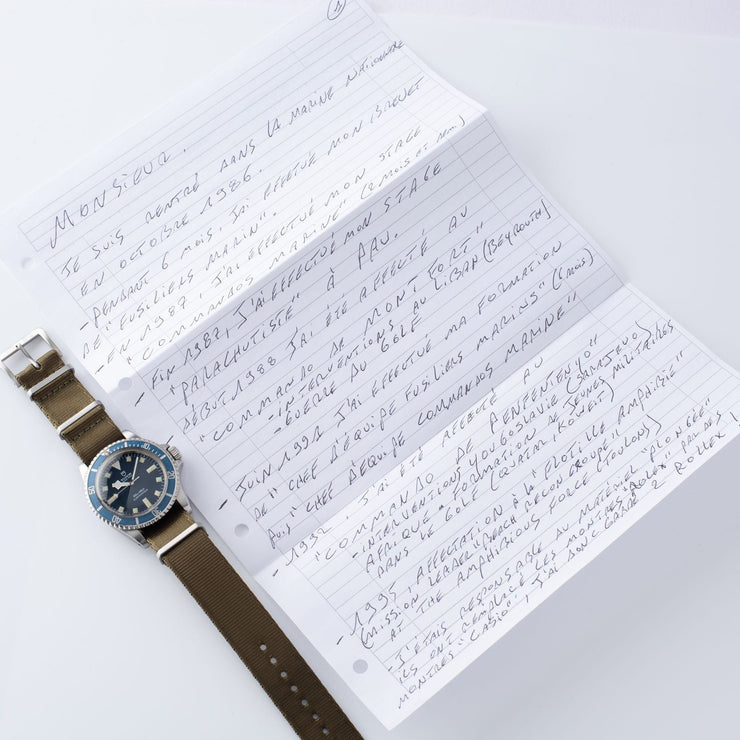 1
MONSIEUR.
JE SUIS RENTRÉ DANS LA MARINE NATIONALE
EN OCTOBRE 1986.
- PENDANT 6 MOIS, J'AI EFFETUÉ MON BREVET
DE "FUSILIERS MARIN".
- EN 1987, J'AI EFFECTUÉ MON STAGE
"COMMANDOS MARINE" (2 MOIS ET DEMI)
- FIN 1987, J'AI EFFECTUÉ MON STAGE
"PARACHUTISTE" À PAU.
DÉBUT 1988 J'AI ÉTÉ AFFECTÉ AU
"COMMANDO DE MONTFORT"
- INTERVENTIONS AU LIBAN (BEYROUTH)
- GUERRE DU GOLF
- JUIN 1991 J'AI EFFECTUÉ MA FORMATION
DE "CHEF D'ÉQUIPE FUSILIERS MARINS" (6 MOIS)
PUIS "CHEF D'ÉQUIPE COMMANDOS MARINE"
- 1992, J'AI ÉTÉ AFFECTÉ AU
"COMMANDO DE PENFENTENYO"
- INTERVENTIONS YOUGOSLAVIE (SARAJEVO)
AFRIQUE - FORMATION DE JEUNES MILITAIRES
DANS LE GOLF (QUATAR, KOWEIT)
- 1995, AFFECTATION À LA "FLOTILLE AMPHIBIE"
(MISSION LEADER BEACH RECON GROUPE"
AT THE AMPHIBIOUS FORCE (TOULON)
- J'ÉTAIS RESPONSABLE AU MATÉRIEL "PLONGÉE"
ILS ONT REMPLACÉ LES MONTRES ROLEX PAR DES
MONTRES "CASIO", J'AI DONC GARDÉ 2 ROLEX!